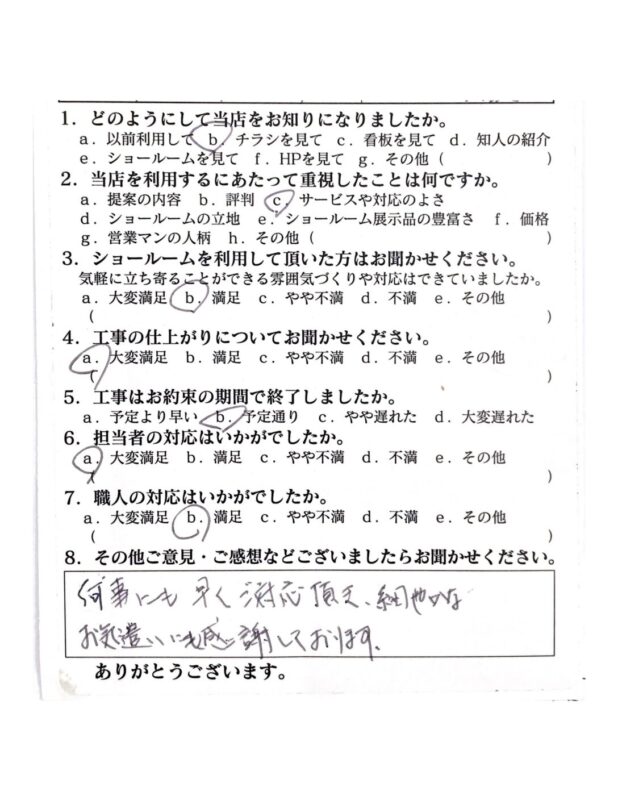 1．どのようにして当店をお知りになりましたか。
a．以前利用して b．チラシを見て c．看板を見て d．知人の紹介
e．ショールームを見て f．HPを見て g．その他（ ）
2．当店を利用するにあたって重視したことは何ですか。
a．提案の内容 b．評判 c．サービスや対応のよさ
d．ショールームの立地 e．ショールーム展示品の豊富さ f．価格
g．営業マンの人柄 h．その他（ ）
3．ショールームを利用して頂いた方はお聞かせください。
気軽に立ち寄ることができる雰囲気づくりや対応はできていましたか。
a．大変満足 b．満足 c．やや不満 d．不満 e．その他
（ ）
4．工事の仕上がりについてお聞かせください。
a．大変満足 b．満足 c．やや不満 d．不満 e．その他
（ ）
5．工事はお約束の期間で終了しましたか。
a．予定より早い b．予定通り c．やや遅れた d．大変遅れた
6．担当者の対応はいかがでしたか。
a．大変満足 b．満足 c．やや不満 d．不満 e．その他
（ ）
7．職人の対応はいかがでしたか。
a．大変満足 b．満足 c．やや不満 d．不満 e．その他
（ ）
8．その他ご意見・ご感想などございましたらお聞かせください。
何事にも早く対応頂き、細やかな
お気遣いにも感謝しております。
ありがとうございます。